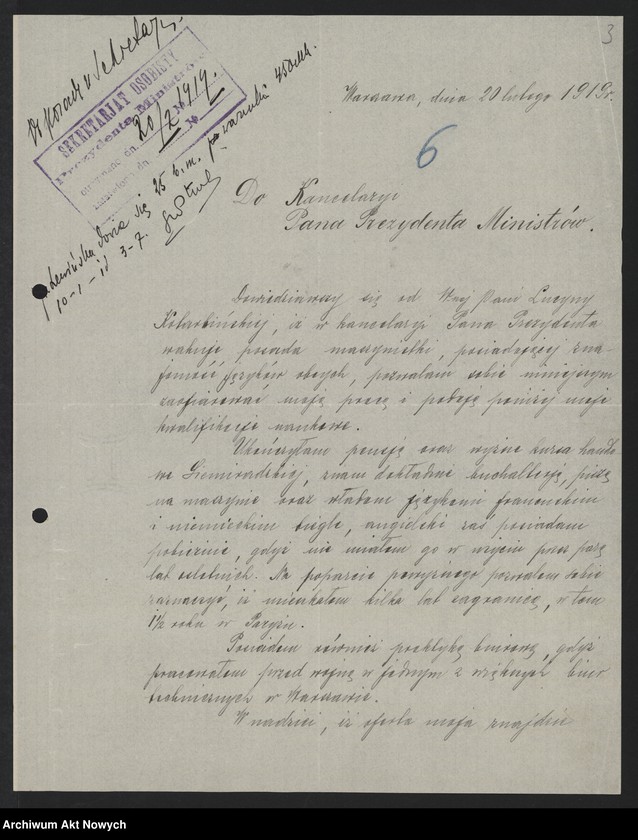 3
W sprawie Sekretarz.
SEKRETARJAT OSOBISTY
Prezydenta Ministrów
otrzymano dn. 20/2 1919.
załatwiono dn. №
się 25 b.m. warunki 450 Mk.
10-1- i od 3-7.
Warszawa, dnia 20 lutego 1919 r.
6
Do Kancelaryi
Pana Prezydenta Ministrów.
Dowiedziawszy się od Wej Pani Lucyny
Kotarbińskiej, iż w kancelaryi Pana Prezydenta
wakuje posada maszynistki, posiadającej zna-
jomość języków obcych, pozwalam sobie niniejszym
zaofiarować moją pracę i podaję poniżej moje
kwalifikacje naukowe.
Ukończyłam pensję oraz wyższe kursa handlo-
we Siemiradzkiej, znam dokładnie buchalterję, piszę
na maszynie oraz władam językami francuskim
i niemieckim biegle, angielski zaś posiadam
pobieżnie, gdyż nie miałam go w użyciu przez parę
lat ostatnich. Na poparcie powyższego pozwalam sobie
zaznaczyć, iż mieszkałam kilka lat zagranicą, w tem
1½ roku w Paryżu.
Posiadam również praktykę biurową, gdyż
pracowałam przed wojną w jednym z większych biur
technicznych w Warszawie.
W nadziei, iż oferta moja znajdzie
Archiwum Akt Nowych